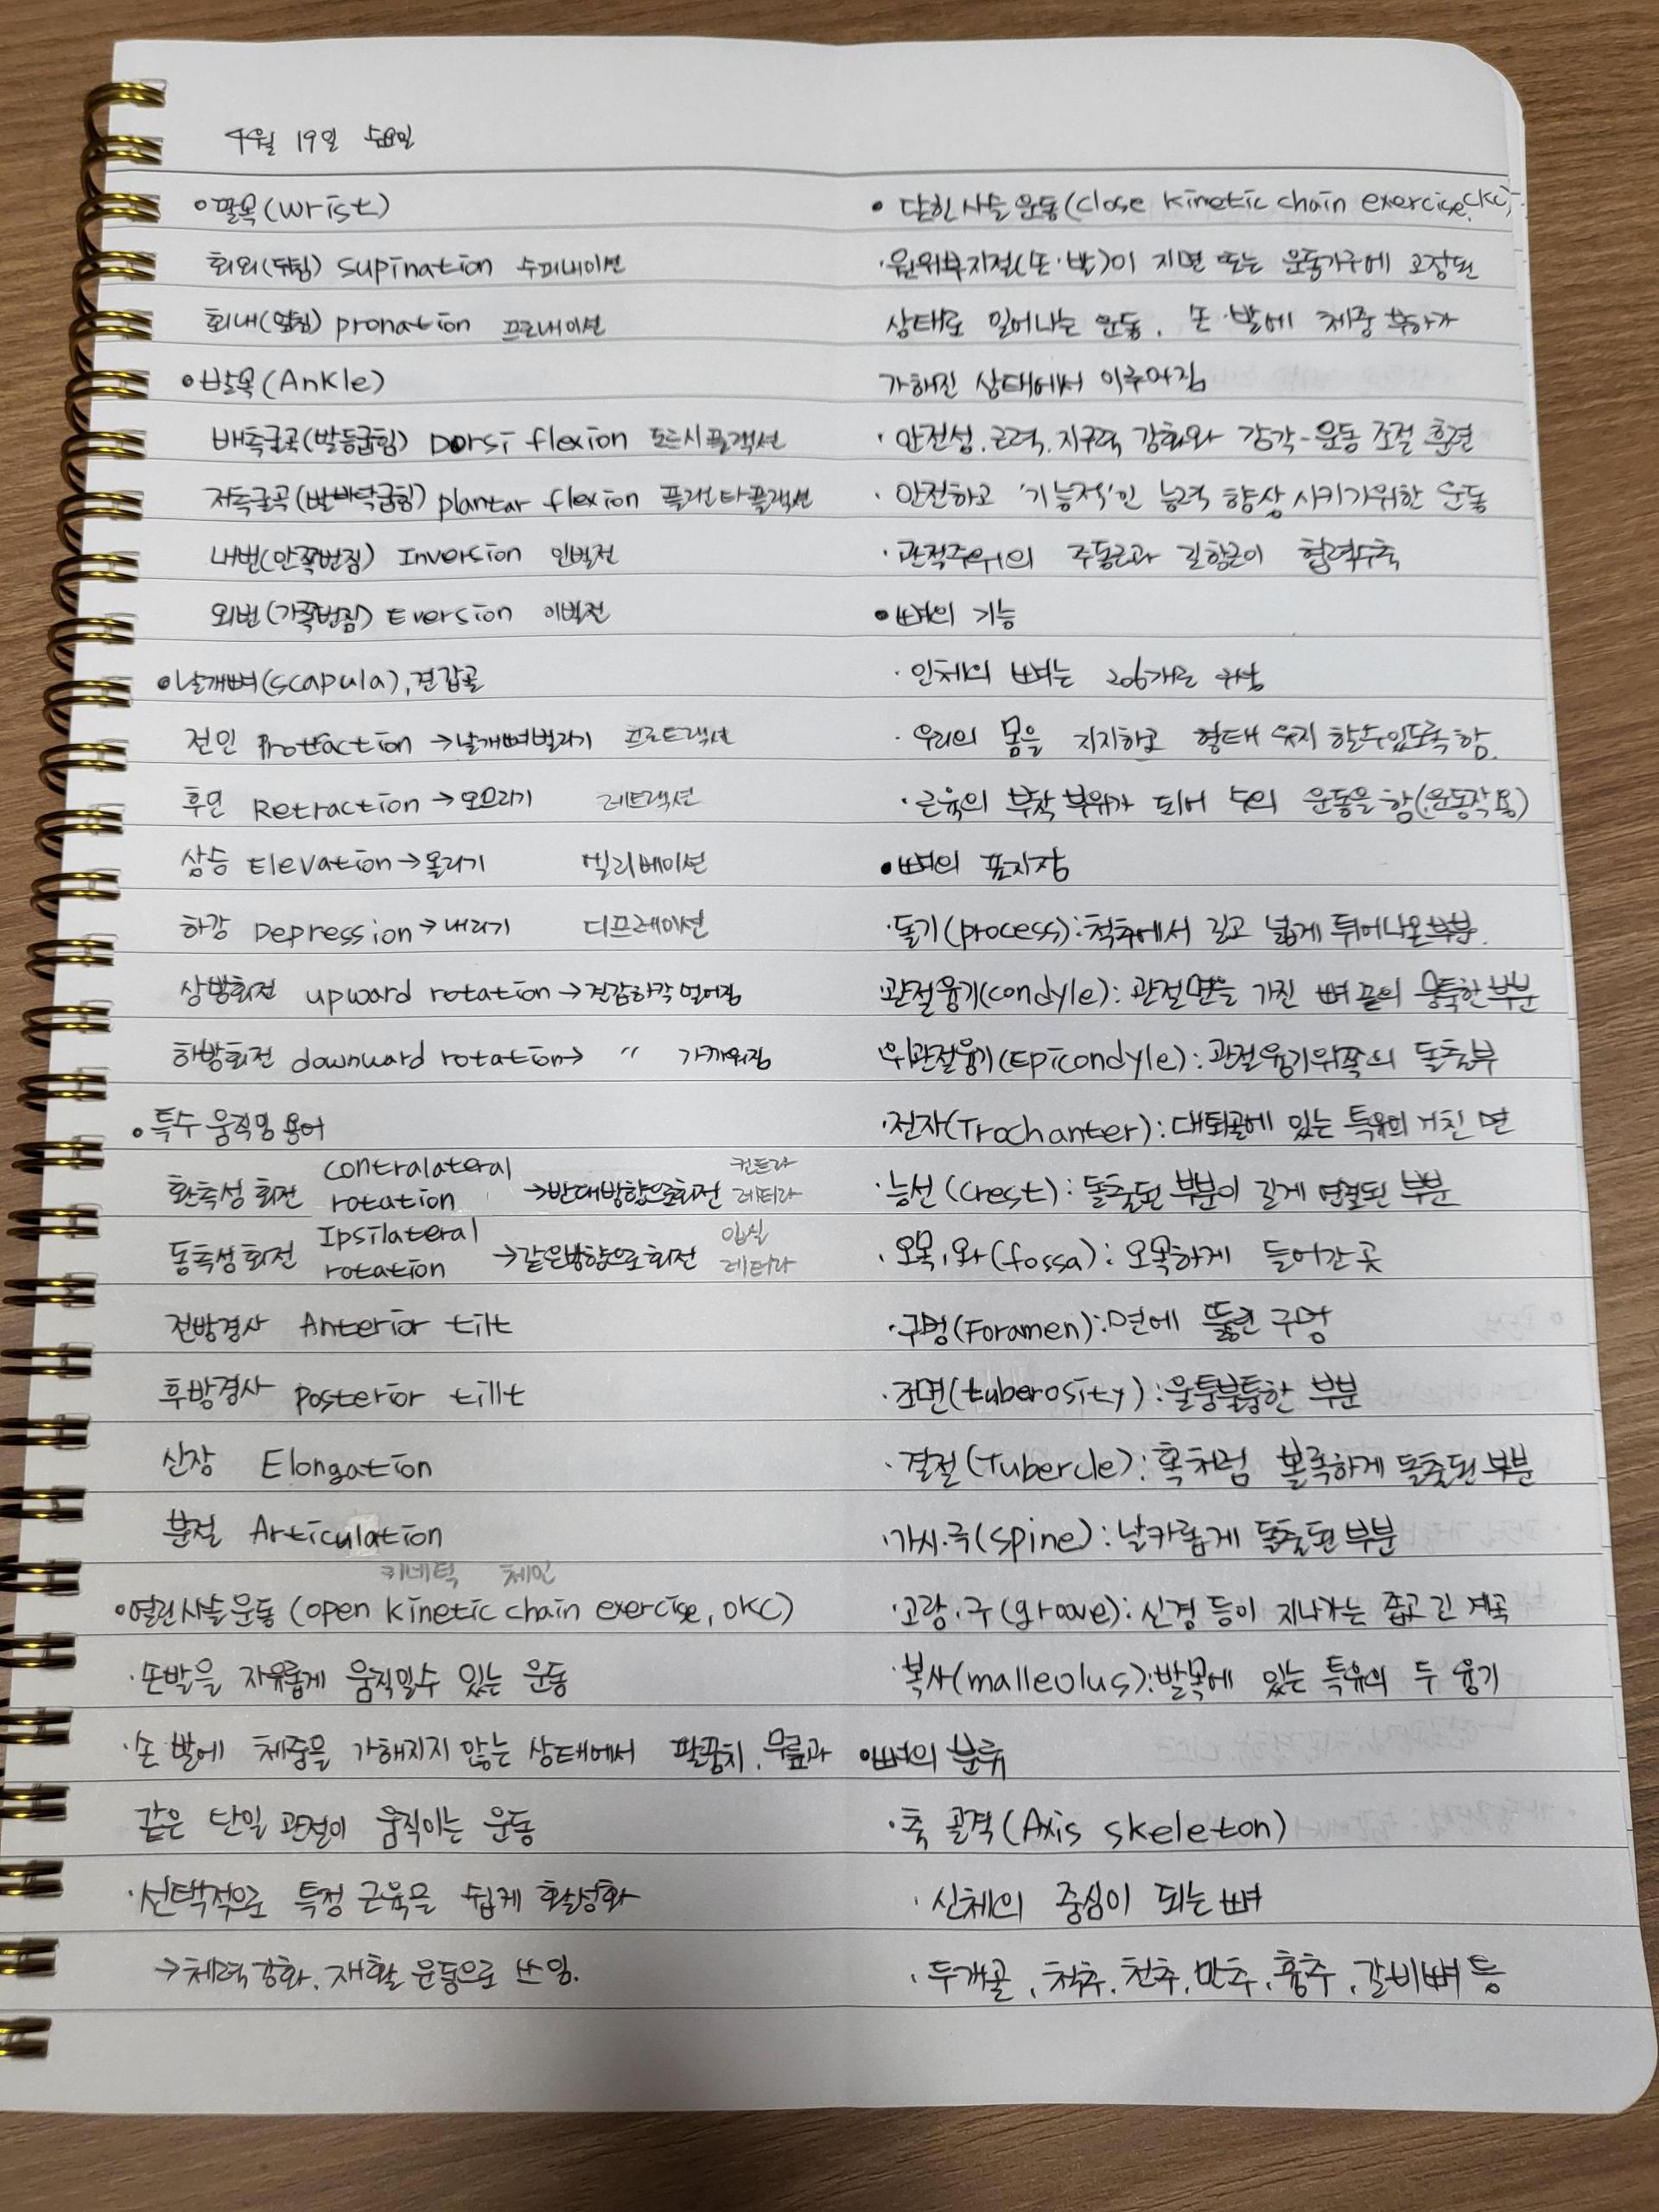 4월 19일 수요일
• 팔목(wrist)
회외(뒤침) supination 수피네이션
회내(엎침) pronation 프로네이션
• 발목(Ankle)
배측굴곡(발등굽힘) Dorsi flexion 도르시플랙션
저측굴곡(발바닥굽힘) plantar flexion 플랜타플랙션
내번(안쪽번짐) Inversion 인벌전
외번(가쪽번짐) Eversion 이벌전
• 날개뼈(scapula), 견갑골
전인 Protraction → 날개뼈벌리기 프로트랙션
후인 Retraction → 모으리기 레트랙션
상승 Elevation → 올리기 엘리베이션
하강 Depression → 내리기 디프레이션
상방회전 upward rotation → 견갑하각 멀어짐
하방회전 downward rotation → 〃 가까워짐
• 특수 움직임 용어
환측성 회전 contralateral rotation → 반대방향으로회전 컨트라 레터라
동측성 회전 Ipsilateral rotation → 같은방향으로 회전 입실 레터라
전방경사 Anterior tilt
후방경사 posterior tillt
신장 Elongation
분절 Articulation
키네틱 체인
• 열린사슬 운동 (open kinetic chain exercise, OKC)
· 손발을 자유롭게 움직일수 있는 운동
· 손 발에 체중을 가해지지 않는 상태에서 팔꿈치, 무릎과
같은 단일 관절이 움직이는 운동
· 선택적으로 특정 근육을 쉽게 활성화
→ 체력강화, 재활 운동으로 쓰임.
• 닫힌 사슬 운동(close kinetic chain exercise, CKC)
· 원위부지절(손·발)이 지면 또는 운동기구에 고정된
상태로 일어나는 운동, 손·발에 체중 부하가
가해진 상태에서 이루어짐
· 안전성, 근력, 지구력 강화와 감각-운동 조절 훈련
· 안전하고 '기능적'인 능력 향상 시키기위한 운동
· 관절주위의 주동근과 길항근이 협력수축
• 뼈의 기능
· 인체의 뼈는 206개로 구성
· 우리의 몸을 지지하고 형태 유지 할수있도록 함.
· 근육의 부착 부위가 되어 수의 운동을 함(운동작용)
• 뼈의 표지장
· 돌기(process): 척추에서 길고 넓게 튀어나온부분.
· 관절융기(condyle): 관절면을 가진 뼈 끝의 뭉툭한 부분
· 위관절융기(Epicondyle): 관절융기위쪽의 돌출부
· 전자(Trochanter): 대퇴골에 있는 특유의 거친 면
· 능선 (crest): 돌출된 부분이 길게 연결된 부분
· 오목, 와(fossa): 오목하게 들어간 곳
· 구멍(Foramen): 면에 뚫린 구멍
· 조면(tuberosity): 울퉁불퉁한 부분
· 결절(Tubercle): 혹처럼 볼록하게 돌출된 부분
· 가시·극(spine): 날카롭게 돌출된 부분
· 고랑·구(groove): 신경 등이 지나가는 좁고 긴 계곡
· 복사(malleolus): 발목에 있는 특유의 두 융기
• 뼈의 분류
· 축 골격(Axis skeleton)
· 신체의 중심이 되는 뼈
· 두개골, 척추, 천추, 만추, 흉추, 갈비뼈 등